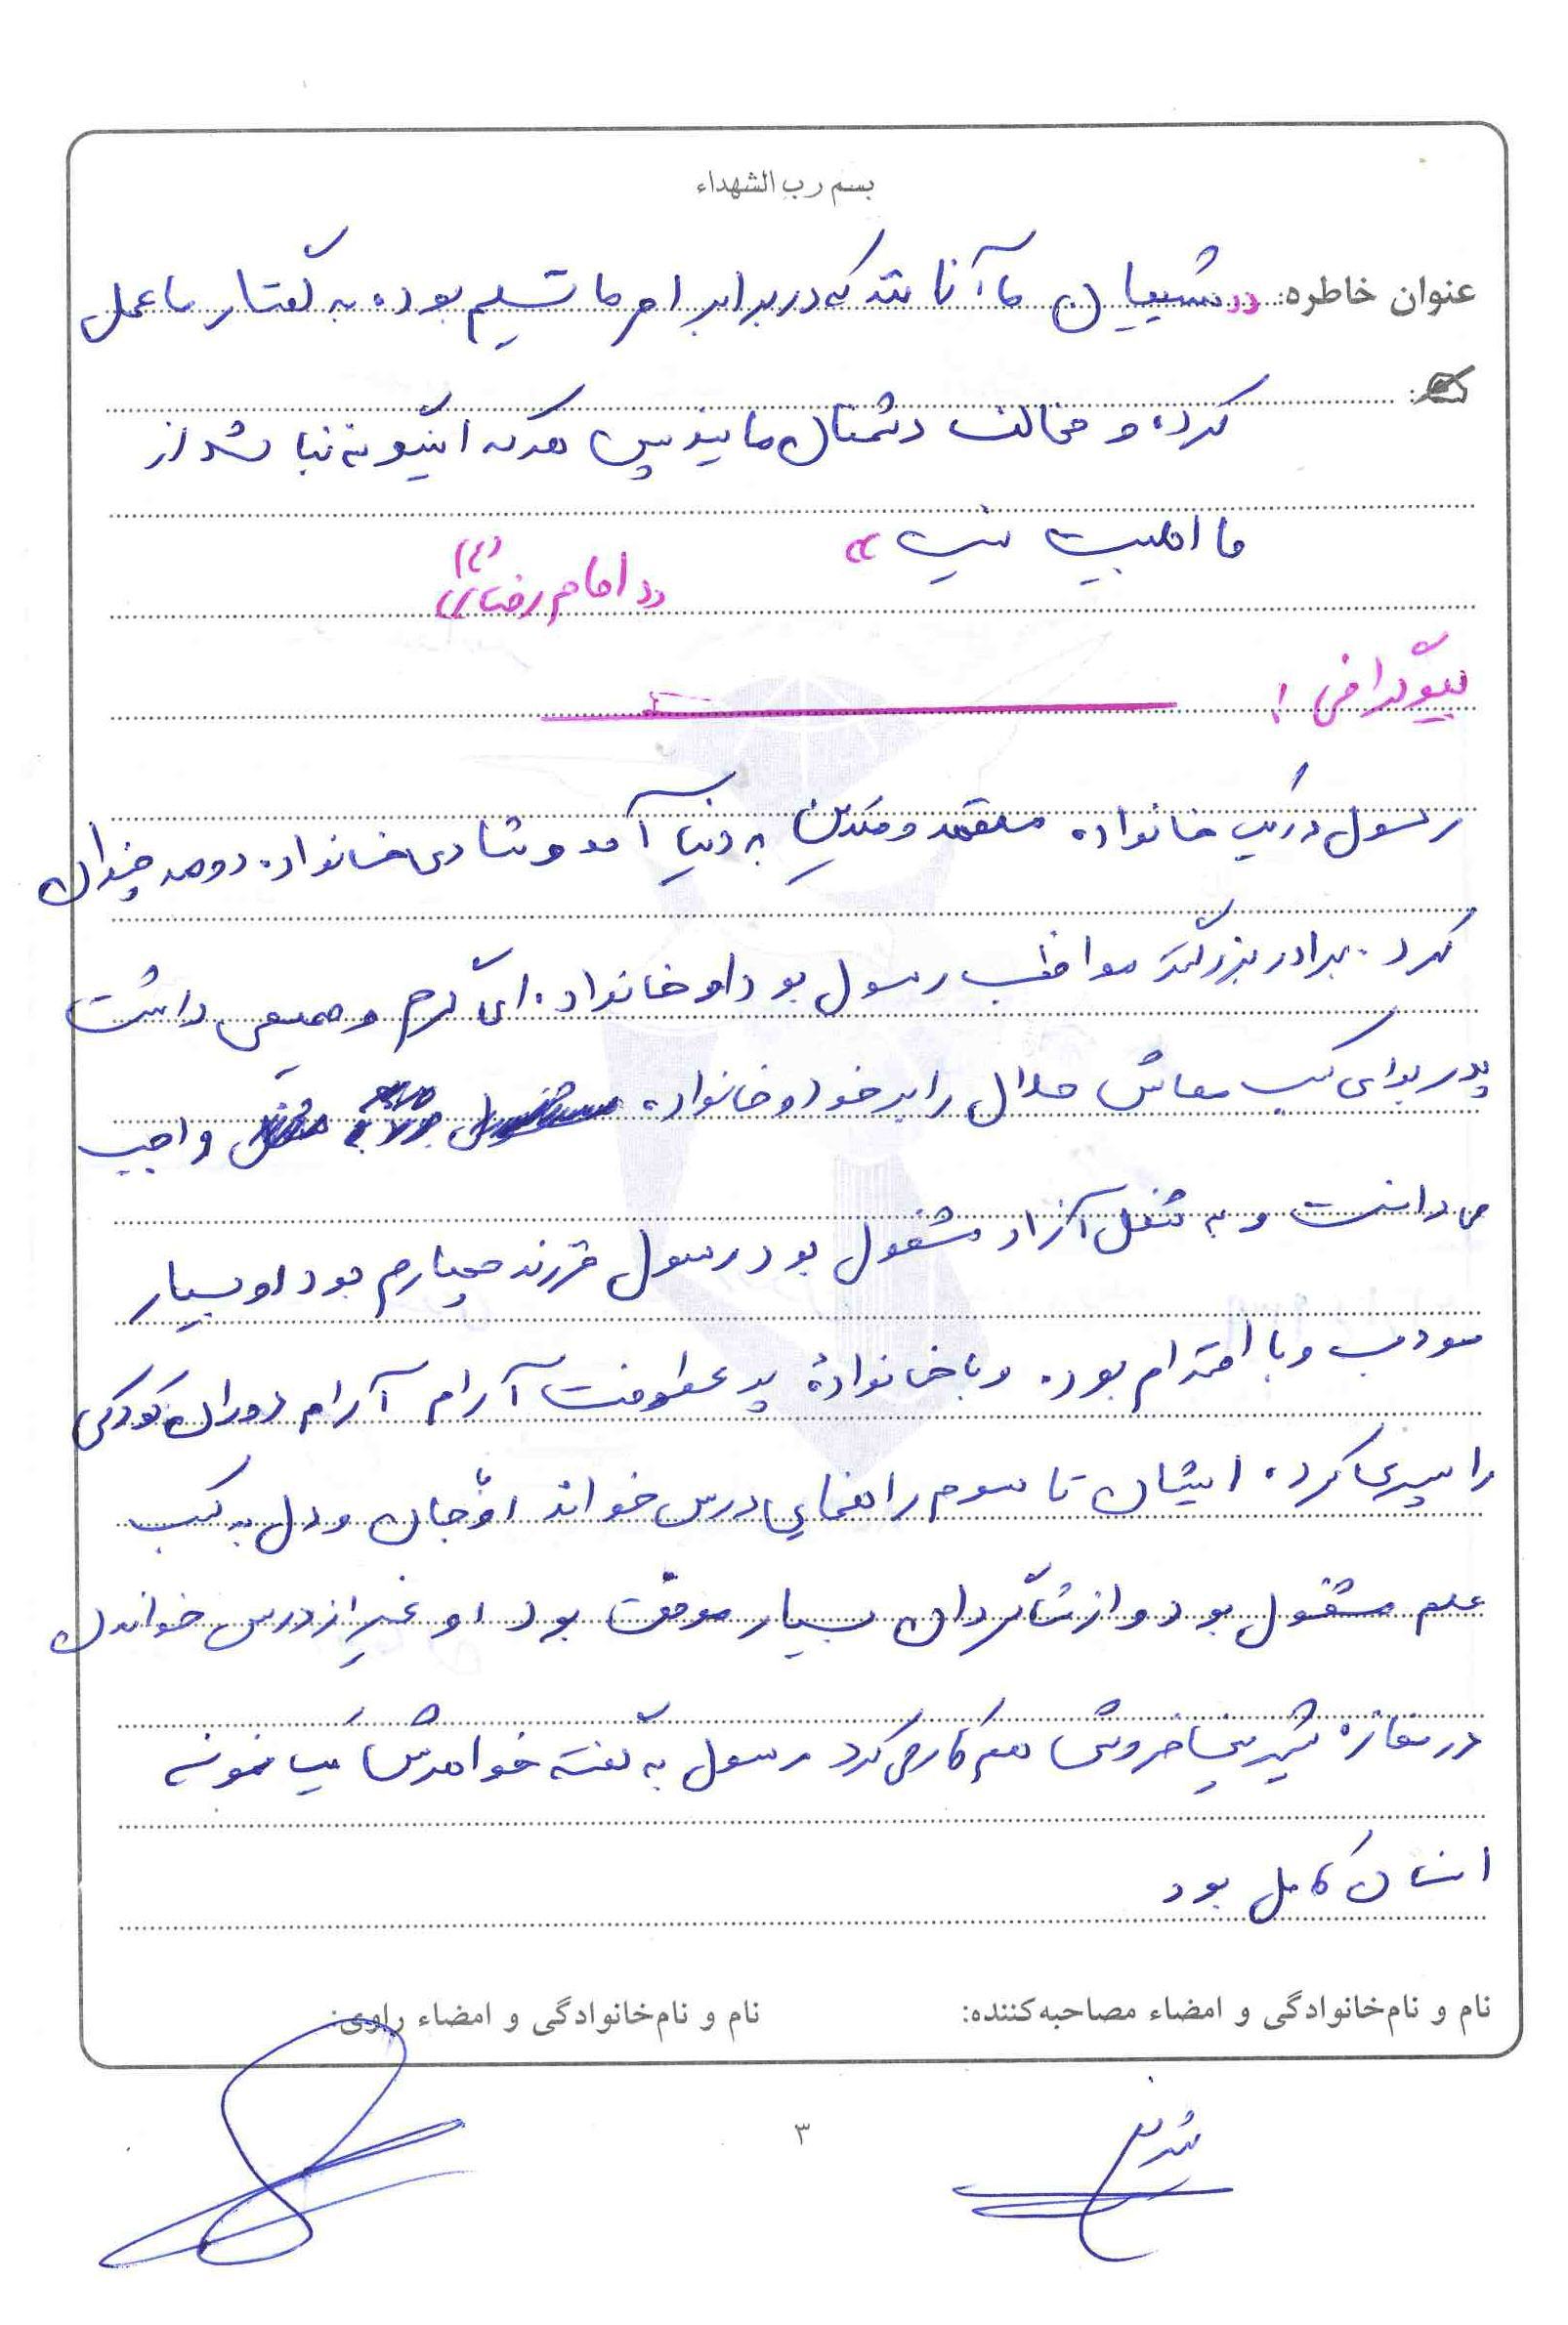 بسم رب الشهداء
عنوان خاطره: «شیعیان ما آنانند که در برابر امر ما تسلیم بوده به گفتار ما عمل
کرده و مخالف دشمنان مایند پس هر که اینگونه نباشد از
ما اهلبیت نیست»
«امام رضا (ع)»
بیوگرافی:
رسول در یک خانواده معتقد و متدین به دنیا آمد و شادی خانواده دو صد چندان
کرد. برادر بزرگتر مواظب رسول بود او خانواده ای گرم و صمیمی داشت
پدر برای کسب معاش حلال را بر خود و خانواده واجب
می دانست و به شغل آزاد مشغول بود رسول فرزند چهارم بود او بسیار
مودب و با احترام بود. و با خانوادهٔ پر عطوفت آرام آرام دوران کودکی
را سپری کرد. ایشان تا سوم راهنمایی درس خواند او جان و دل به کسب
علم مشغول بود و از شاگردان بسیار موفق بود او غیر از درس خواندن
در مغازه شیرینی فروشی هم کار می کرد رسول به گفته خواهرش یک نمونه
انسان کامل بود
نام و نام‌خانوادگی و امضاء مصاحبه‌کننده:
نام و نام‌خانوادگی و امضاء راوی:
۳